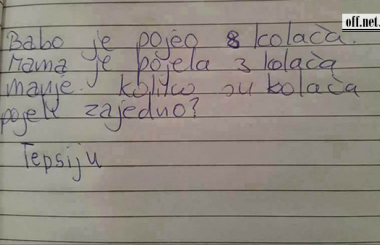 off.net.
Babo je pojeo 8 kolača.
Mama je pojela 3 kolača
manje. koliko su kolača
pojeli zajedno?
Tepsiju